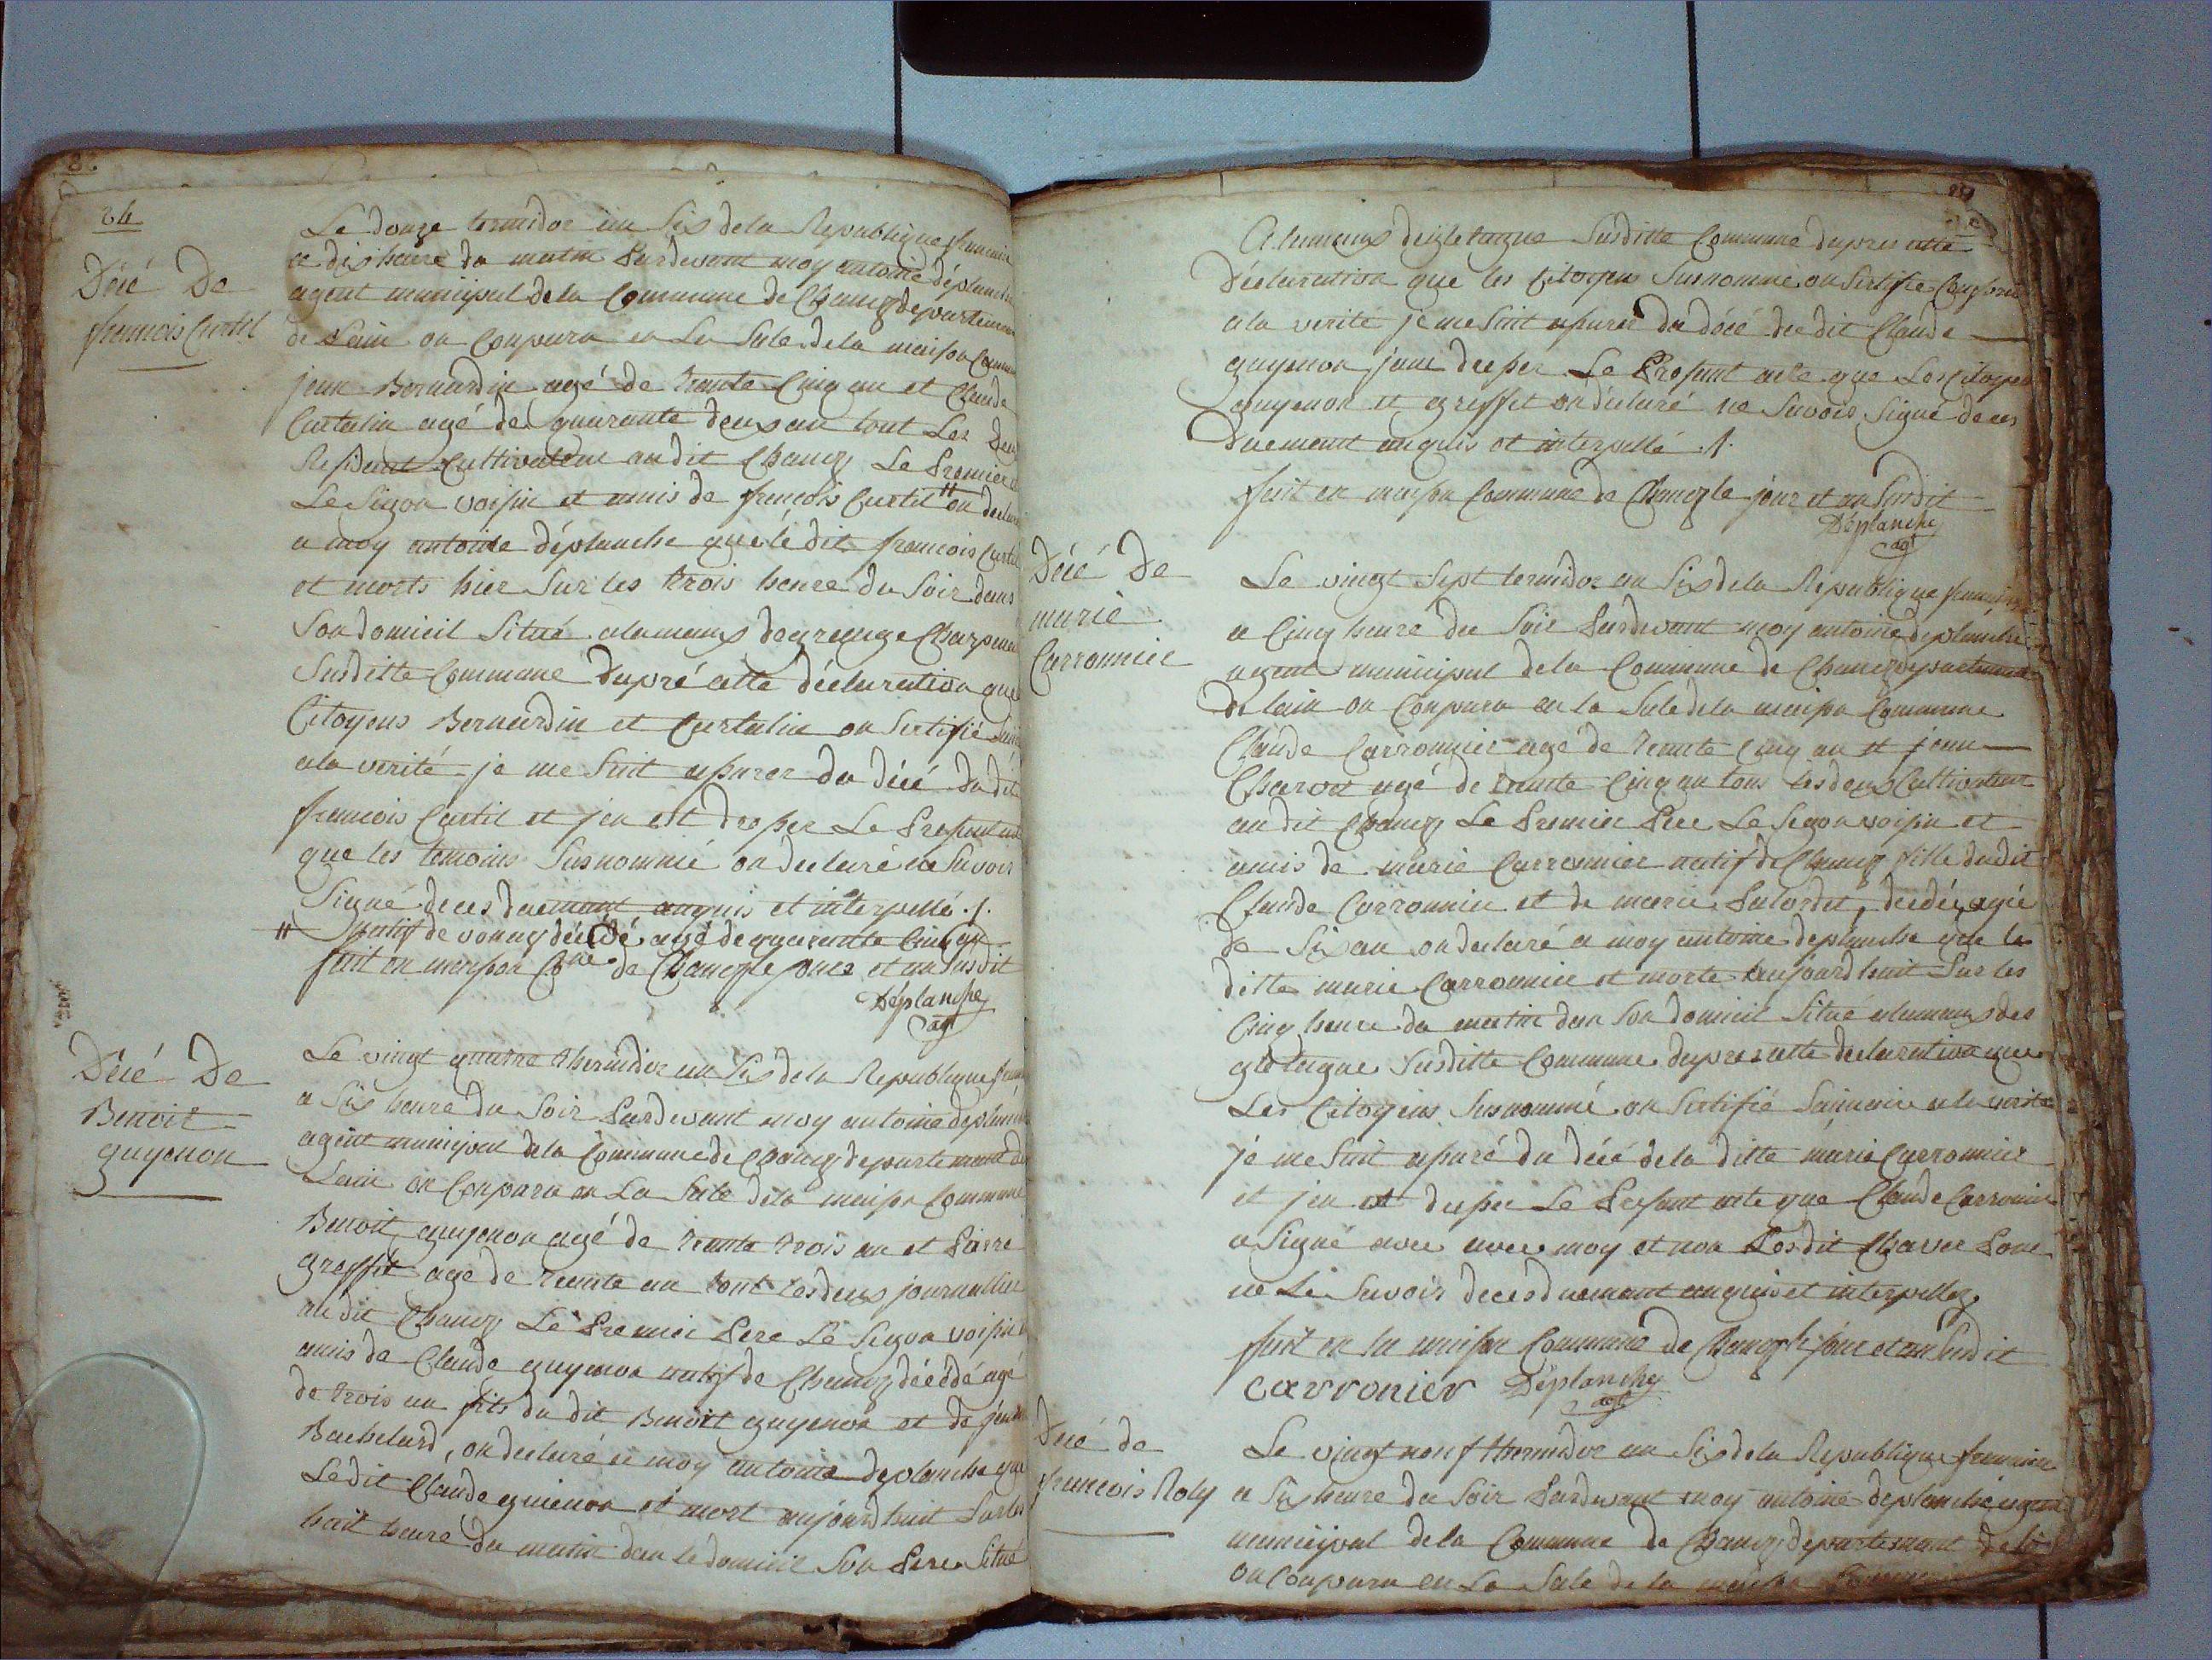 24
Décé De
francois Curtil
Le douze termidor an Six de la Republique francaise
a dix heure du matin Pardevant moy antoine déplanche
agent municipal de la Commune de Chanoz departement
de Lain on Conparu en La Sale de la maison Commune
jean Bernardin agé de trante Cinq an et Claude
Curtalin agé de quarante deux an tout Les deux
Residant Cultivateur audit Chanoz Le Premier
Le Segon voisin et amis de françois Curtil # on declaré
a moy antoine déplanche que le dit francois Curtil
et morts hier Sur les trois heure du Soir dans
Son domicil Situé alamaux de grange
Susditte Commune dupré cette déclaration que
Citoyens Bernardin et Curtalin on Sertifié
ala verité je me Suit apurer du décé du dit
francois Curtil et jen est dreser Le Present acte
que les temoins Susnommé on declaré ne Savoir
Signé de ces duemant anquis et interpellé ./.
# natif de vonnas décédé agé de quarante Cinq an
fait en maison Cone de Chanoz le jour et an Susdit
Déplanche
agt
Décé De
Benoit
guyenon
Le vingt quatre thermidor an Six de la Republique
a Six heure du Soir Pardevant moy antoine deplanche
agent municipal de la Commune de Chanoz departemant de
Lain on Conparu en La Sale de la maison Commune
Benoit guyenon agé de trante trois an et Pierre
greffet age de trante an tout les deux journallier
au dit Chanoz Le Premier Pere Le Segon voisin
amis de Claude guyenon natif de Chanoz décédé agé
de trois an fils du dit Benoit guyenon et de
Bachelard, on declaré a moy antoine deplanche que
Ledit Claude guienon et mort aujourdhuit Sur les
huit heure du matin dan le domicil Son Pere Situé
Alamaux Susditte Commune dupres cette
déclaration que les Citoyen Susnommé on Sertifié
ala verité je me Suit apurer du décé du dit Claude
guyenon jan dreser Le Présant acte que Les Citoyen
guyenon et greffet on déclaré ne Savoir Signé de ces
duemant anquis et interpellé ./.
fait en maison Commune de Chanoz le jour et an Susdit
Déplanche
agt
Décé De
marie
Carronnier
Le vingt Sept termidor an Six de la Republique francaise
a Cinq heure du Soir Pardevant moy antoine deplanche
agent municipal de la Commune de Chanoz departemant
de lain on Conparu en la Sale de la maison Commune
Claude Carronnier agé de trante Cinq an et jean
Charvet agé de trante Cinq an tous les deux Cultivateur
au dit Chanoz Le Premier Pere Le Segon voisin et
amis de marie Carronnier natif de Chanoz fille dudit
Claude Carronnier et de marie decédé, agée
de Six an on declaré a moy antoine deplanche que la
ditte marie Carronnier et morte aujourdhuit Sur les
Cinq heure du matin dan Son domicil Situé alamaux des
Susditte Commune dupres cette declaration que
Les Citoyens Susnommé on Sertifié ala verité
je me Suit apuré du décé de la ditte marie Carronnier
et jen est dreser Le Present acte que Claude Carronnier
a Signé avec avec moy et non Ledit Pour
ne Le Savoir de ces duemant anquis et interpellez
fait en la maison Commune de Chanoz le jour et an Susdit
carronier Déplanche
agt
Décé de
francois Roly
Le vingt neuf thermidor an Six de la Republique francaise
a Six heure du Soir Pardevant moy antoine deplanche agent
municipal de la Commune de Chanoz departemant de
on Conparu en La Sale de la maison Commune